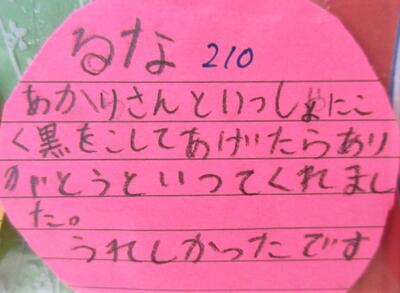 るな 210
あかりさんといっしょにこ
く黒をこしてあげたらあり
がとうといってくれまし
た。
うれしかったです